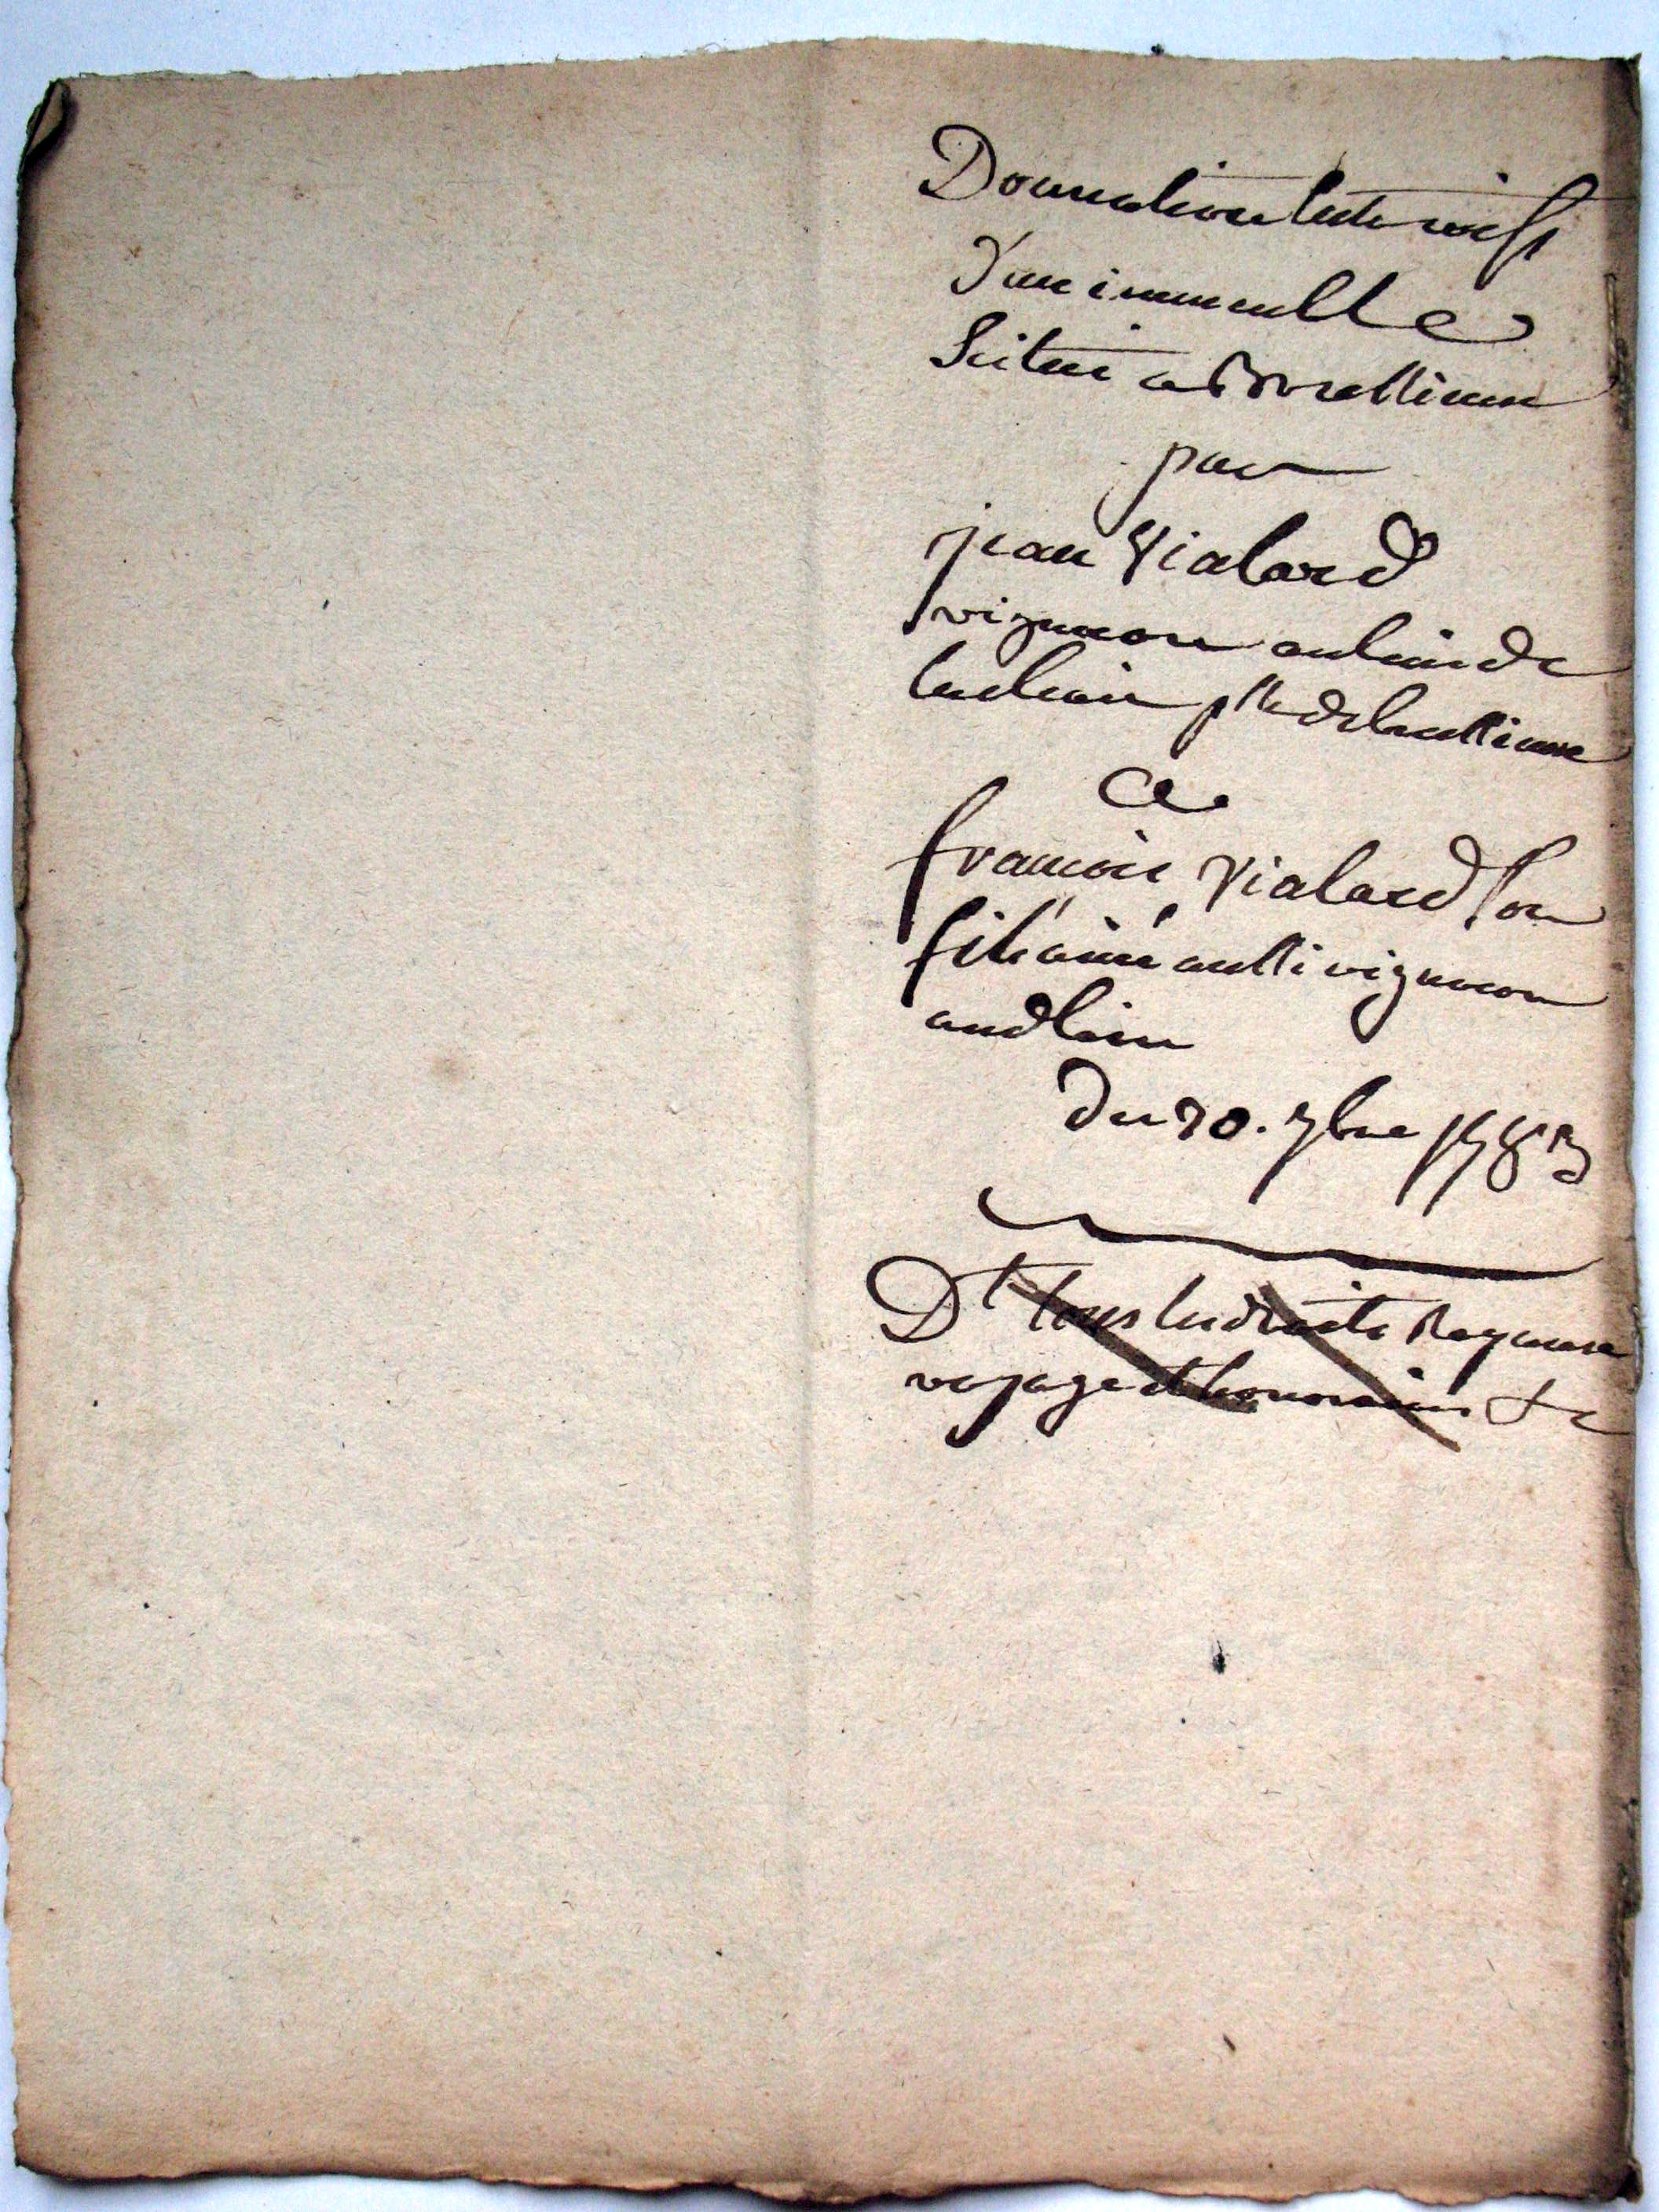 Donnation entre vifs
d'un immeuble
Scitué a
par
jean Vialard
vigneron au lieu de
psse de
a
francois Vialard son
fils ainé aussi vigneron
aud lieu
du 20. 7bre 1783
Dt tous les droits
voyage et honoraires &c